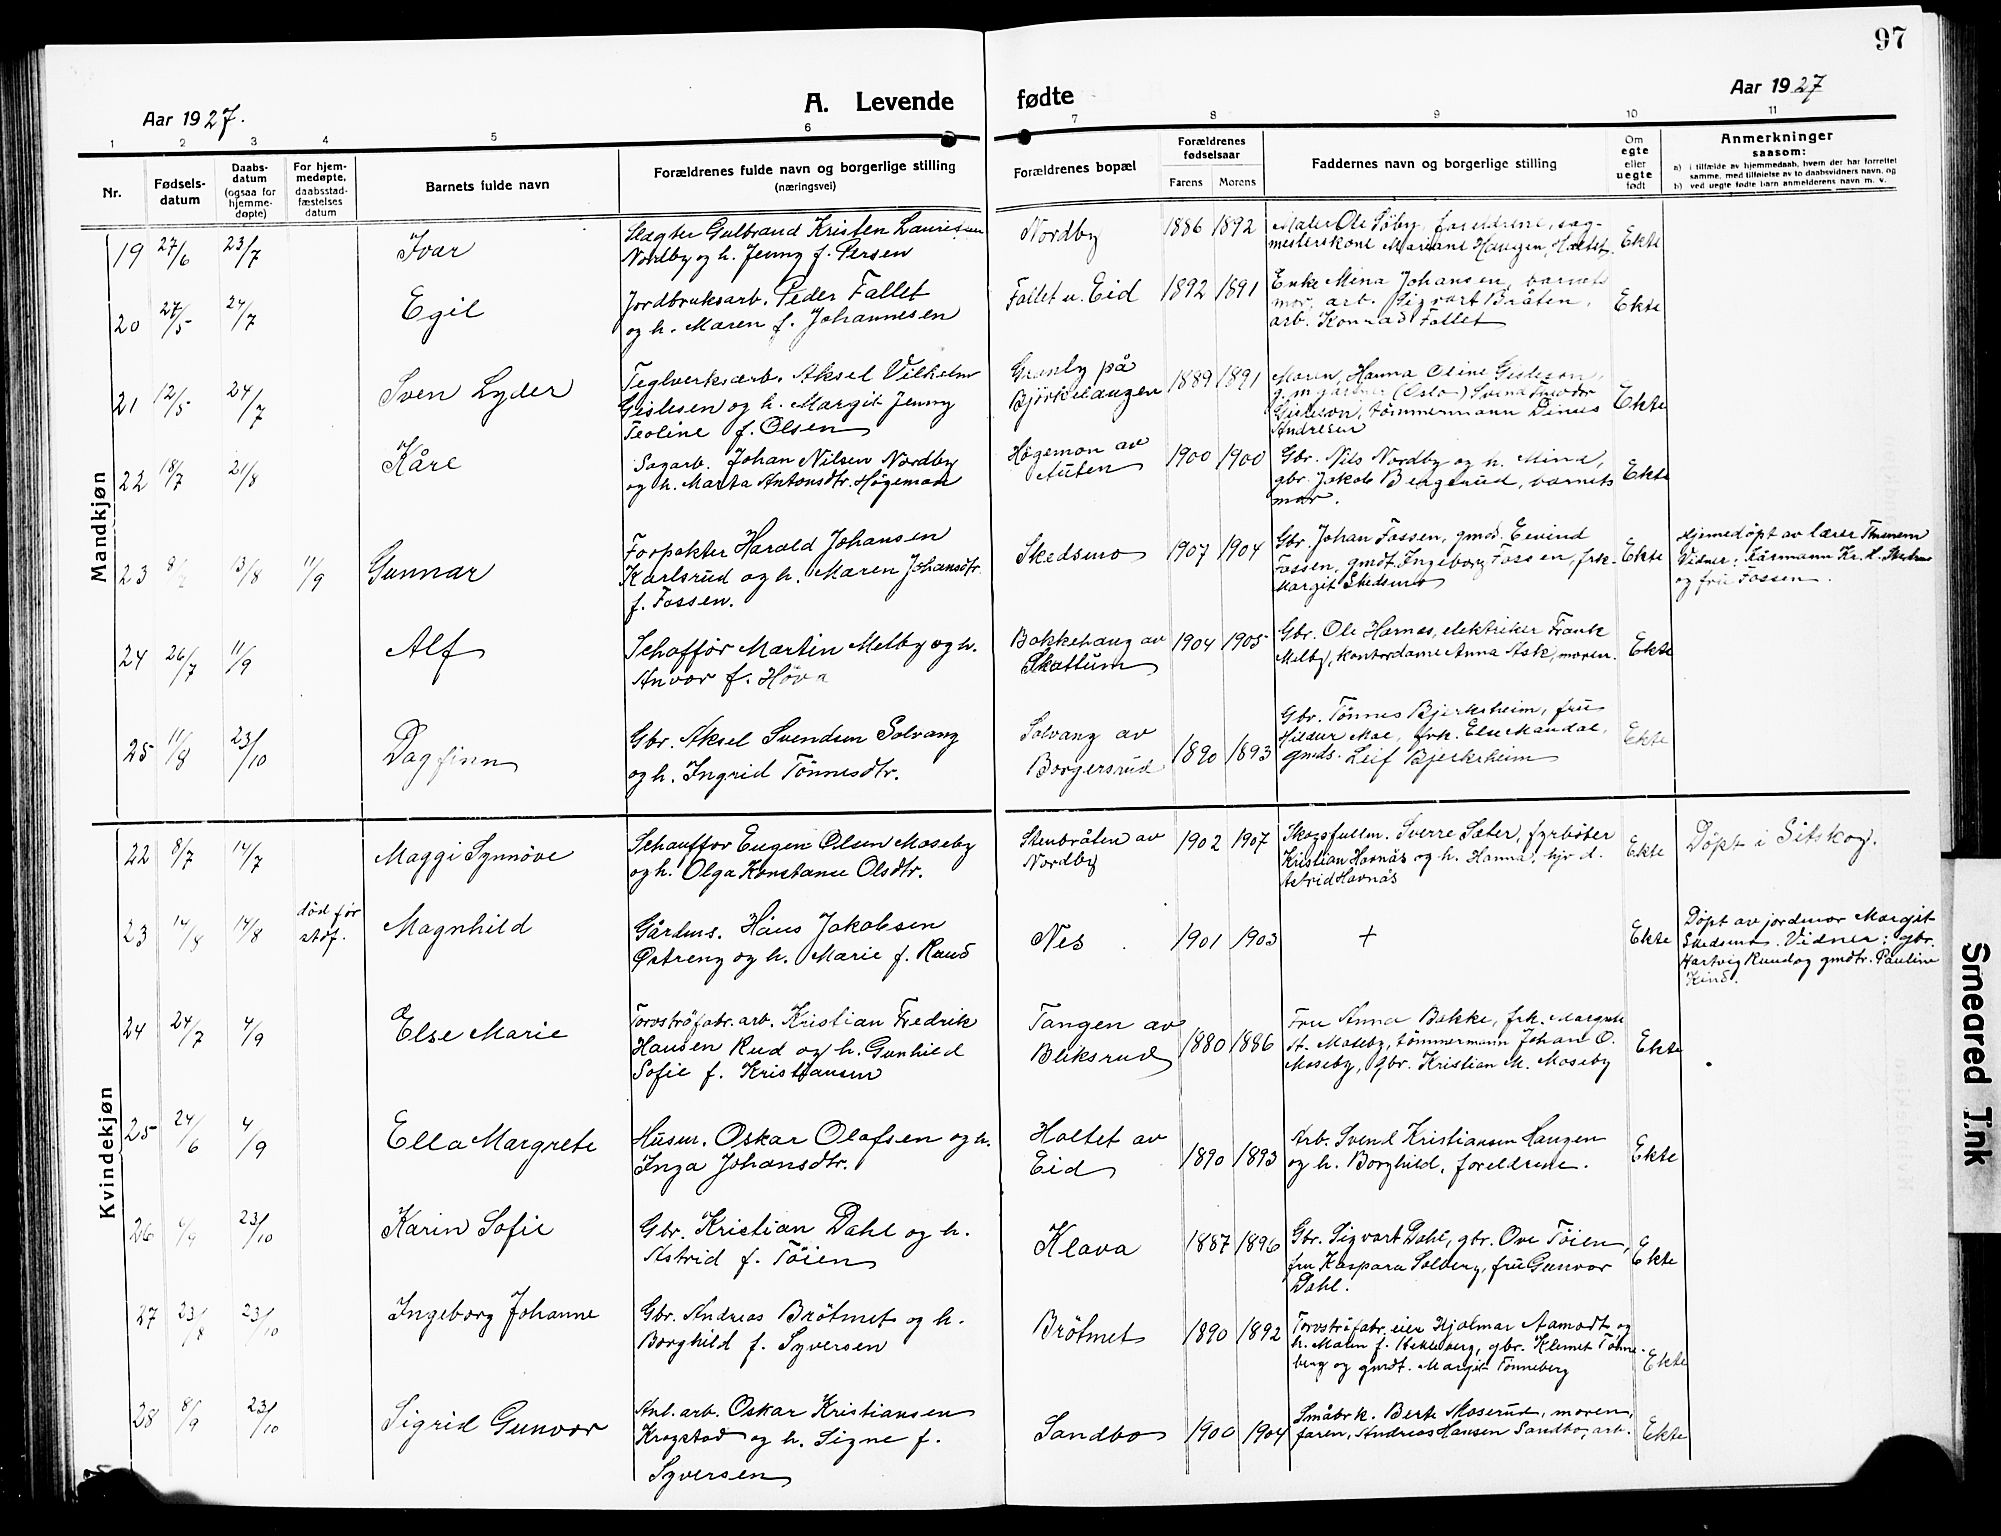 97
Aar 1927.
A. Levende
fødte
Aar 1927
1 2 3 4 5 6 7 8 9 10 11
Nr.
Fødsels-
datum
Daabs-
datum
(ogsaa for
hjemme-
døpte)
For hjem-
medøpte,
daabsstad-
fæstelses
datum
Barnets fulde navn
Forældrenes fulde navn og borgerlige stilling
(næringsvei)
Forældrenes bopæl
Forældrenes
fødselsaar
Farens Morens
Faddernes navn og borgerlige stilling
Om
egte
eller
uegte
født
Anmerkninger
saasom:
a) i tilfælde av hjemmedaab, hvem der har forrettet
samme, med tilføielse av to daabsvidners navn, og
b) ved uegte fødte barn anmelderens navn m. v.
Mandkjøn
19 27/6 23/7 Ivar
Slagter Gulbrand Kristen Lauritsen
Nordby og h. Jenny f. Persen
Nordby 1886 1892
Maler Ole Søby, foreldrene, sag-
mesterskone Mariane Haugen, Holtet
Ekte
20 27/5 24/7 Egil
Jordbruksarb. Peder Fallet
og h. Maren f. Johannesen
Fallet u. Eid 1892 1891
Enke Mina Johansen, barnets
mor, arb. Sigvart Bråten,
arb. Konrad Fallet
Ekte
21 12/5 24/7 Sven Lyder
Teglverksarb. Aksel Vilhelm
Gislesen og h. Margit Jenny
Teoline f. Olsen
Granly på
Bjørkelangen 1889 1891
Maren, Hanna Oline Gislesen,
(Oslo)
Gislesen, tømmermann Dinus
Andresen
Ekte
22 18/7 21/8 Kåre
Sagarb. Johan Nilsen Nordby
og h. Marta Antonsdtr. Høgemon
Høgemon av
Auten 1900 1900
Gbr. Nils Nordby og h. Mina,
gbr. Jakob Bergerud, barnets
mor.
Ekte
23 13/8 11/9 Gunnar
Forpakter Harald Johansen
Karlsrud og h. Maren Johansdtr.
f. Fossen.
Skedsmo 1907 1904
Gbr. Johan Fossen, gmds. Eivind
Fossen, gmdt. Ingeborg Fossen, frk.
Margit Skedsmo
Ekte
Hjemedøpt av lærer
Vidner: Kr. H.
og fru Fossen.
24 26/7 11/9 Alf
Schaffør Martin Melby og h.
Anvor f.
Bakkehaug av
Skattum 1904 1905
Gbr. Ole Hornes, elektriker Frank
Melby, kontordame Anna Ask, moren.
Ekte
25 11/8 23/10 Dagfinn
Gbr. Aksel Svendsen Solvang
og h. Ingrid Tønnesdtr.
Solvang av
Borgersrud 1890 1893
Gbr. Tønnes Bjerksheim, fru
Hildur Moe, frk. Else Mandal,
gmds. Leif Bjerksheim
Ekte
Kvindekjøn
22 8/7 14/7 Maggi Synnöve
Schauffør Eugen Olsen Moseby
og h. Olga Konstanse Olsdtr.
Stenbråten av
Nordby 1902 1907
Skogsfullm. Sverre Sæter, fyrbøter
Kristian Havnäs og h. Hanna, hjv. d.
Astrid Havnäs
Ekte
Døpt i Sitskog.
23 14/8 14/8 død før
stdf.
Magnhild
Gårdbrs. Hans Jakobsen
Østreng og h. Marie f. Ruud
Nes 1901 1903
+
Ekte
Døpt av jordmor Margit
Skedsmo. Vidner: gbr.
Hartvig Ruud og gmdtr. Pauline
24 24/7 4/9 Else Marie
Torvstrøfabr. arb. Kristian Fredrik
Hansen Rud og h. Gunhild
Sofie f. Kristiansen
Tangen av
Bliksrud 1880 1886
Fru Anna Bakke, frk. Margit
A. Moseby, tømmermann Johan O.
Moseby, Gbr. Kristian M. Moseby
Ekte
25 24/6 4/9 Ella Margrete
Husm. Oskar Olafsen og h.
Inga Johansdtr.
Holtet av
Eid 1890 1893
Arb. Svend Kristiansen Haugen
og h. Borghild, foreldrene.
Ekte
26 23/10 Karin Sofie
Gbr. Kristian Dahl og h.
Astrid f. Töien
Klava 1887 1896
Gbr. Sigvart Dahl, gbr. Ove Töien,
fru Kaspara Solberg, fru Gunvor
Dahl.
Ekte
27 23/8 23/10 Ingeborg Johanne
Gbr. Andreas Bråtmet og h.
Borghild f. Syversen
Bråtmet 1890 1892
Torvströfabr. eier Hjalmar Aamodt og
h. Malin f. Hekleberg, gbr. Klemet Tönne-
berg og gmdt. Margit Tönneberg
Ekte
28 8/9 23/10 Sigrid Gunvor
Anl. arb. Oskar Kristiansen
Krogstad og h. Signe f.
Syversen
Sandbo 1900 1904
Småbr. k. Berte Moserud, moren,
faren, Andreas Hansen Sandbo, arb.
Ekte
Smeared Ink